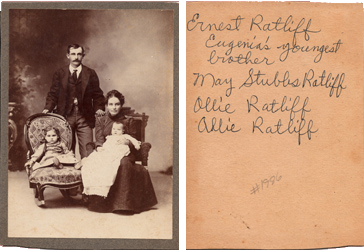 Ernest Ratliff
Eugenia's youngest
brother
May Stubbs Ratliff
Ollie Ratliff
Allie Ratliff
#1996